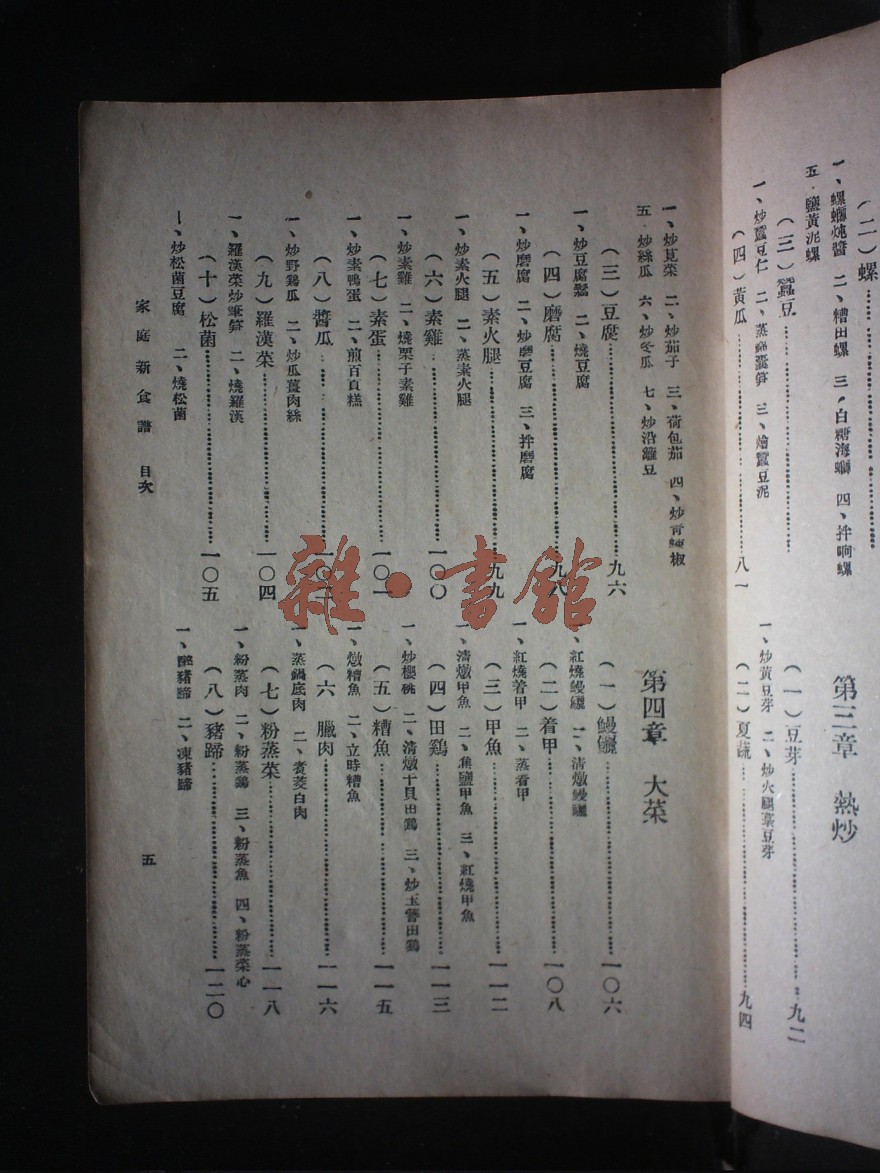 （二）螺
一、螺螄炖醬　二、糟田螺　三、白糖海螄　四、拌响螺
五．鹽黃泥螺
（三）蠶豆
一、炒蠶豆仁　二、蒸　三、燴蠶豆泥
（四）黃瓜　八一
第三章　熱炒
（一）豆芽　九二
一、炒黃豆芽　二、炒火腿菉豆芽
（二）夏蔬　九四
一、炒莧菜　二、炒茄子　三、荷包茄　四、炒青辣椒
五．炒絲瓜　六、炒冬瓜　七、炒沿籬豆
（三）豆腐　九六
一、炒豆腐鬆　二、燒豆腐
（四）磨腐　九八
一、炒磨腐　二、炒磨豆腐　三、拌磨腐
（五）素火腿　九九
一、炒素火腿　二、蒸素火腿
（六）素雞　一〇〇
一、炒素雞　二、燒栗子素雞
（七）素蛋　一〇一
一、炒素鴨蛋　二、煎百頁糕
（八）醬瓜　一〇三
一、炒野鷄瓜　二、炒瓜薑肉絲
（九）羅漢菜　一〇四
一、羅漢菜炒筆筍　二、燒羅漢
（十）松菌　一〇五
一、炒松菌豆腐　二、燒松菌
第四章　大菜
（一）鰻鱺　一〇六
一、紅燒鰻鱺　二、清燉鰻鱺
（二）着甲　一〇八
一、紅燒着甲　二、蒸着甲
（三）甲魚　一一二
一、清燉甲魚　二、焦鹽甲魚　三、紅燒甲魚
（四）田鷄　一一三
一、炒櫻桃　二、清燉干貝田鷄　三、炒玉簪田鷄
（五）糟魚　一一五
一、燉糟魚　二、立時糟魚
（六　臘肉　一一六
一、蒸鍋底肉　二、煑菱白肉
（七）粉蒸菜　一一八
一、粉蒸肉　二、粉蒸鷄　三、粉蒸魚　四、粉蒸菜心
（八）豬蹄　一二〇
一、醉豬蹄　二、凍豬蹄
家庭新食譜　目次
五
雜·書館